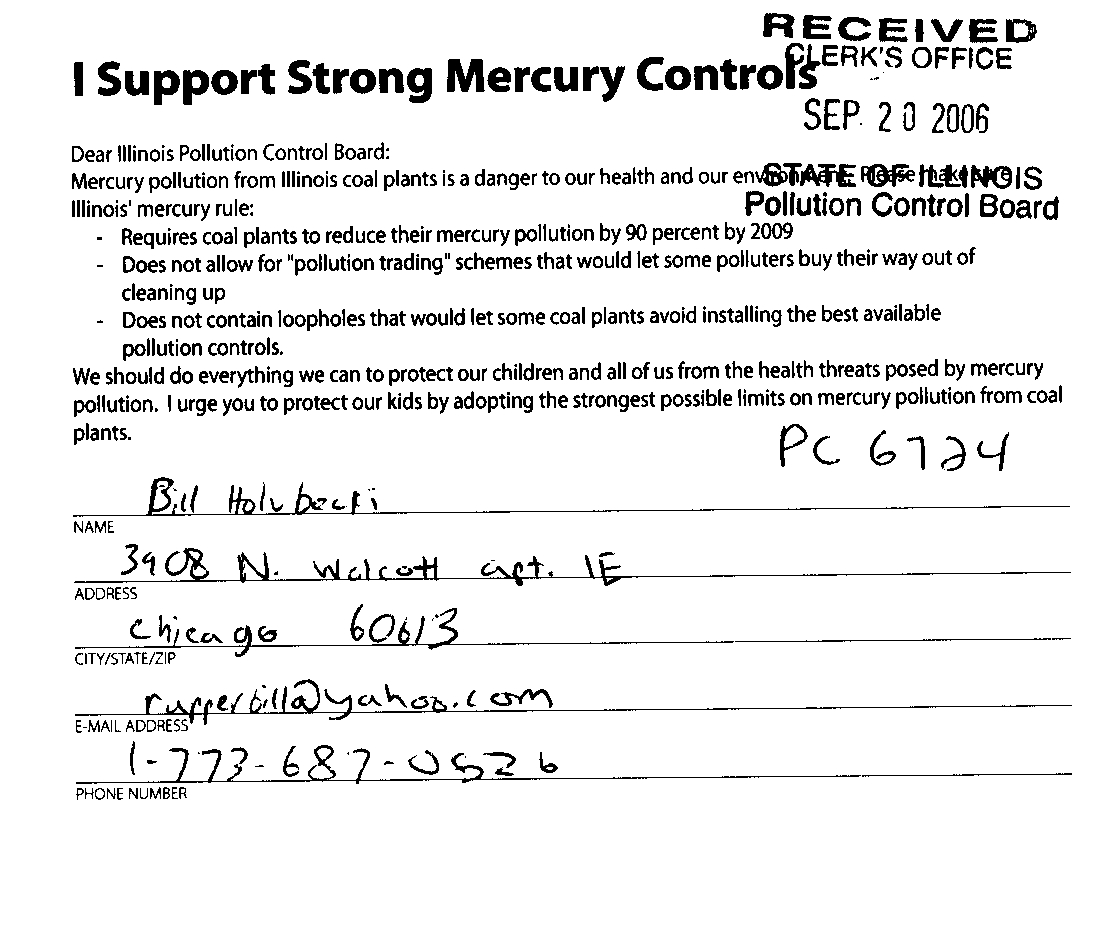 RECEIVED
CLERK'S OFFICE
I Support Strong Mercury Controls
SEP 20 2006
Dear Illinois Pollution Control Board:
Mercury pollution from Illinois coal plants is a danger to our health and our environment. Please make sure
STATE OF ILLINOIS
Illinois' mercury rule:
Pollution Control Board
- Requires coal plants to reduce their mercury pollution by 90 percent by 2009
- Does not allow for "pollution trading" schemes that would let some polluters buy their way out of
cleaning up
- Does not contain loopholes that would let some coal plants avoid installing the best available
pollution controls.
We should do everything we can to protect our children and all of us from the health threats posed by mercury
pollution. I urge you to protect our kids by adopting the strongest possible limits on mercury pollution from coal
plants.
PC 6724
Bill Holubecki
NAME
3908 N. Wolcott apt. 1E
ADDRESS
Chicago 60613
CITY/STATE/ZIP
rupperbill@yahoo.com
E-MAIL ADDRESS
1-773-687-0526
PHONE NUMBER